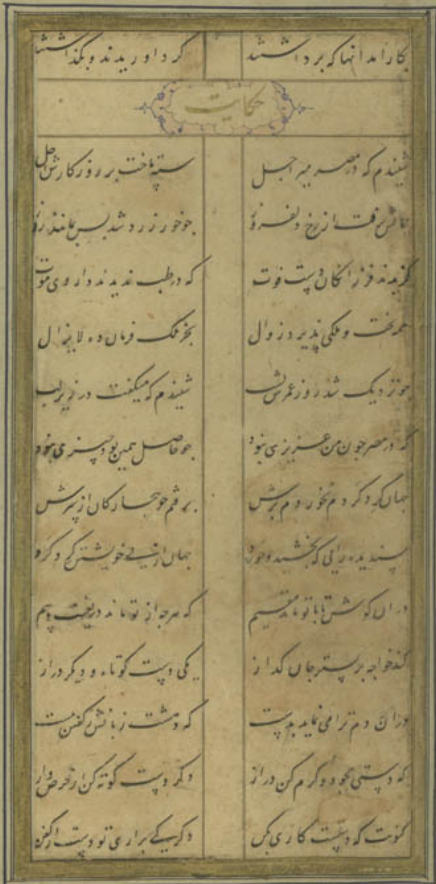 بکار آمد آنها که برداشتند گرد آوریدند و بگذاشتند
حکایت
شنیدم که در مصر میری اجل سپه تاخت بر روزگارش اجل
جمالش برفت از رخ دلفروز چو خور زرد شد بس نماند ز روز
گزیدند فرزانگان دست فوت که در طب ندیدند داروی موت
همه تخت و ملکی پذیرد زوال بجز ملک فرمان ده لایزال
چو نزدیک شد روز عمرش بشب شنیدم که میگفت در زیر لب
که در مصر چون من عزیزی نبود چو حاصل همین بود چیزی نبود
جهان گرد کردم نخوردم برش برفتم چو بیچارکان از سرش
پسندیده رایی که بخشید و خورد جهان از پی خویشتن گرد کرد
در آن کوش تا با تو ماند مقیم که هرچه از تو ماند دریغست و بیم
کند خواجه بر بستر جان گداز یکی دست کوتاه و دیگر دراز
در آن دم ترا می نماید بدست که دهشت زبانش ز گفتن ببست
که دستی بجود و کرم کن دراز دگر دست کوته کن از حرص و آز
کنونت که دستست کاری بکن دگر کی برآری تو دست از کفن